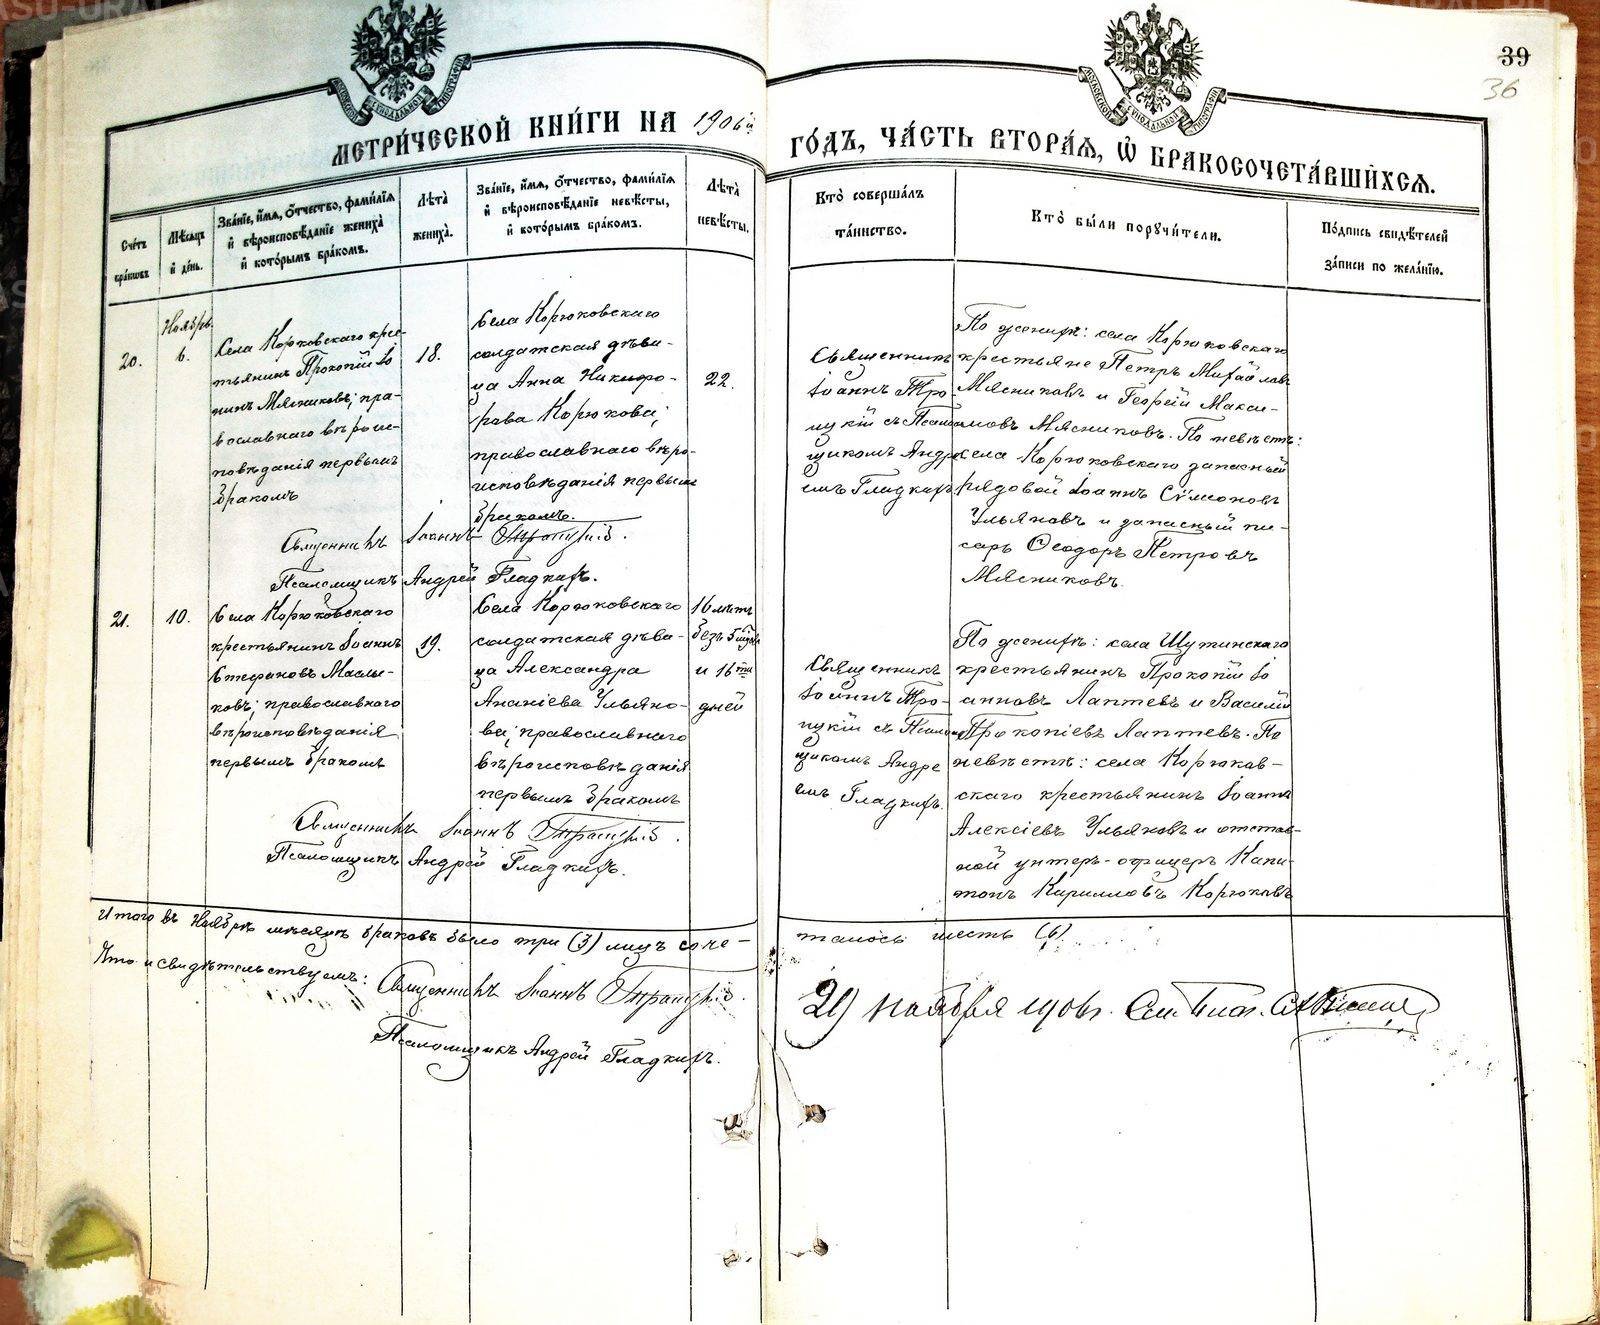 39
36
МЕТРИ́ЧЕСКОЙ КНИ́ГИ НА 1906й
ГО́ДЪ, ЧА́СТЬ ВТОРА́Я, Ѡ БРАКОСОЧЕТА́ВШИХСЯ.
Сче́тъ
бра́ковъ
Мѣ́сяцъ
и де́нь.
Зва́ніе, и́мя, о́тчество, фами́лія
и вѣроисповѣ́даніе жениха̀
и кото́рымъ бра́комъ.
Лѣта̀
жениха̀.
Зва́ніе, и́мя, о́тчество, фами́лія
и вѣроисповѣ́даніе невѣ́сты,
и кото́рымъ бра́комъ.
Лѣта̀
невѣ́сты.
Кто̀ соверша́лъ
та́инство.
Кто̀ бы́ли поручи́тели.
По́дпись свидѣ́телей
за́писи по жела́нію.
20.
Ноябрь
6.
Села Корюковскаго крес-
тьянинъ Прокопій Іо
нинъ Мясниковъ; пра-
вославнаго вѣроис-
повѣданія первымъ
бракомъ
18.
Села Корюковскаго
солдатская дѣви-
ца Анна Никифо-
рова Корюкова;
православнаго вѣро-
исповѣданія первымъ
бракомъ.
22.
Священникъ
Іоаннъ Тро-
ицкій съ Псалом
щикомъ Андре
емъ Гладкихъ
По женихѣ: села Корюковскаго
крестьяне Петръ Михайловъ
Мясниковъ и Георгій Макси-
мовъ Мясниковъ. По невѣстѣ:
села Корюковскаго запасный
рядовой Іоаннъ Сѵмеоновъ
Ульяновъ и запасный пи-
сарь Ѳеодоръ Петровъ
Мясниковъ.
Священникъ Іоаннъ Троицкій.
Псаломщикъ Андрей Гладкихъ.
21.
10.
Села Корюковскаго
крестьянинъ Іоаннъ
Стефановъ Маслы-
ковъ; православнаго
вѣроисповѣданія
первымъ бракомъ
19.
Села Корюковскаго
солдатская дѣви-
ца Александра
Ананіева Ульяно-
ва; православнаго
вѣроисповѣданія
первымъ бракомъ
16 лѣтъ
безъ 5
и 16ти
дней
Священникъ
Іоаннъ Тро-
ицкій съ Псалом
щикомъ Андре
емъ Гладкихъ.
По женихѣ: села Шутинскаго
крестьянинъ Прокопій Іо
анновъ Лаптевъ и Василій
Прокопіевъ Лаптевъ. По
невѣстѣ: села Корюков-
скаго крестьянинъ Іоаннъ
Алексіевъ Ульяновъ и отстав-
ной унтеръ-офицеръ Капи-
тонъ Кирилловъ Корюковъ
Священникъ Іоаннъ Троицкій.
Псаломщикъ Андрей Гладкихъ.
Итого въ Ноябрѣ мѣсяцѣ браковъ было три (3) лицъ соче-
талось шесть (6)
Что и свидѣтельствуемъ: Священникъ Іоаннъ Троицкій.
Псаломщикъ Андрей Гладкихъ.
29 ноября 1906 г.